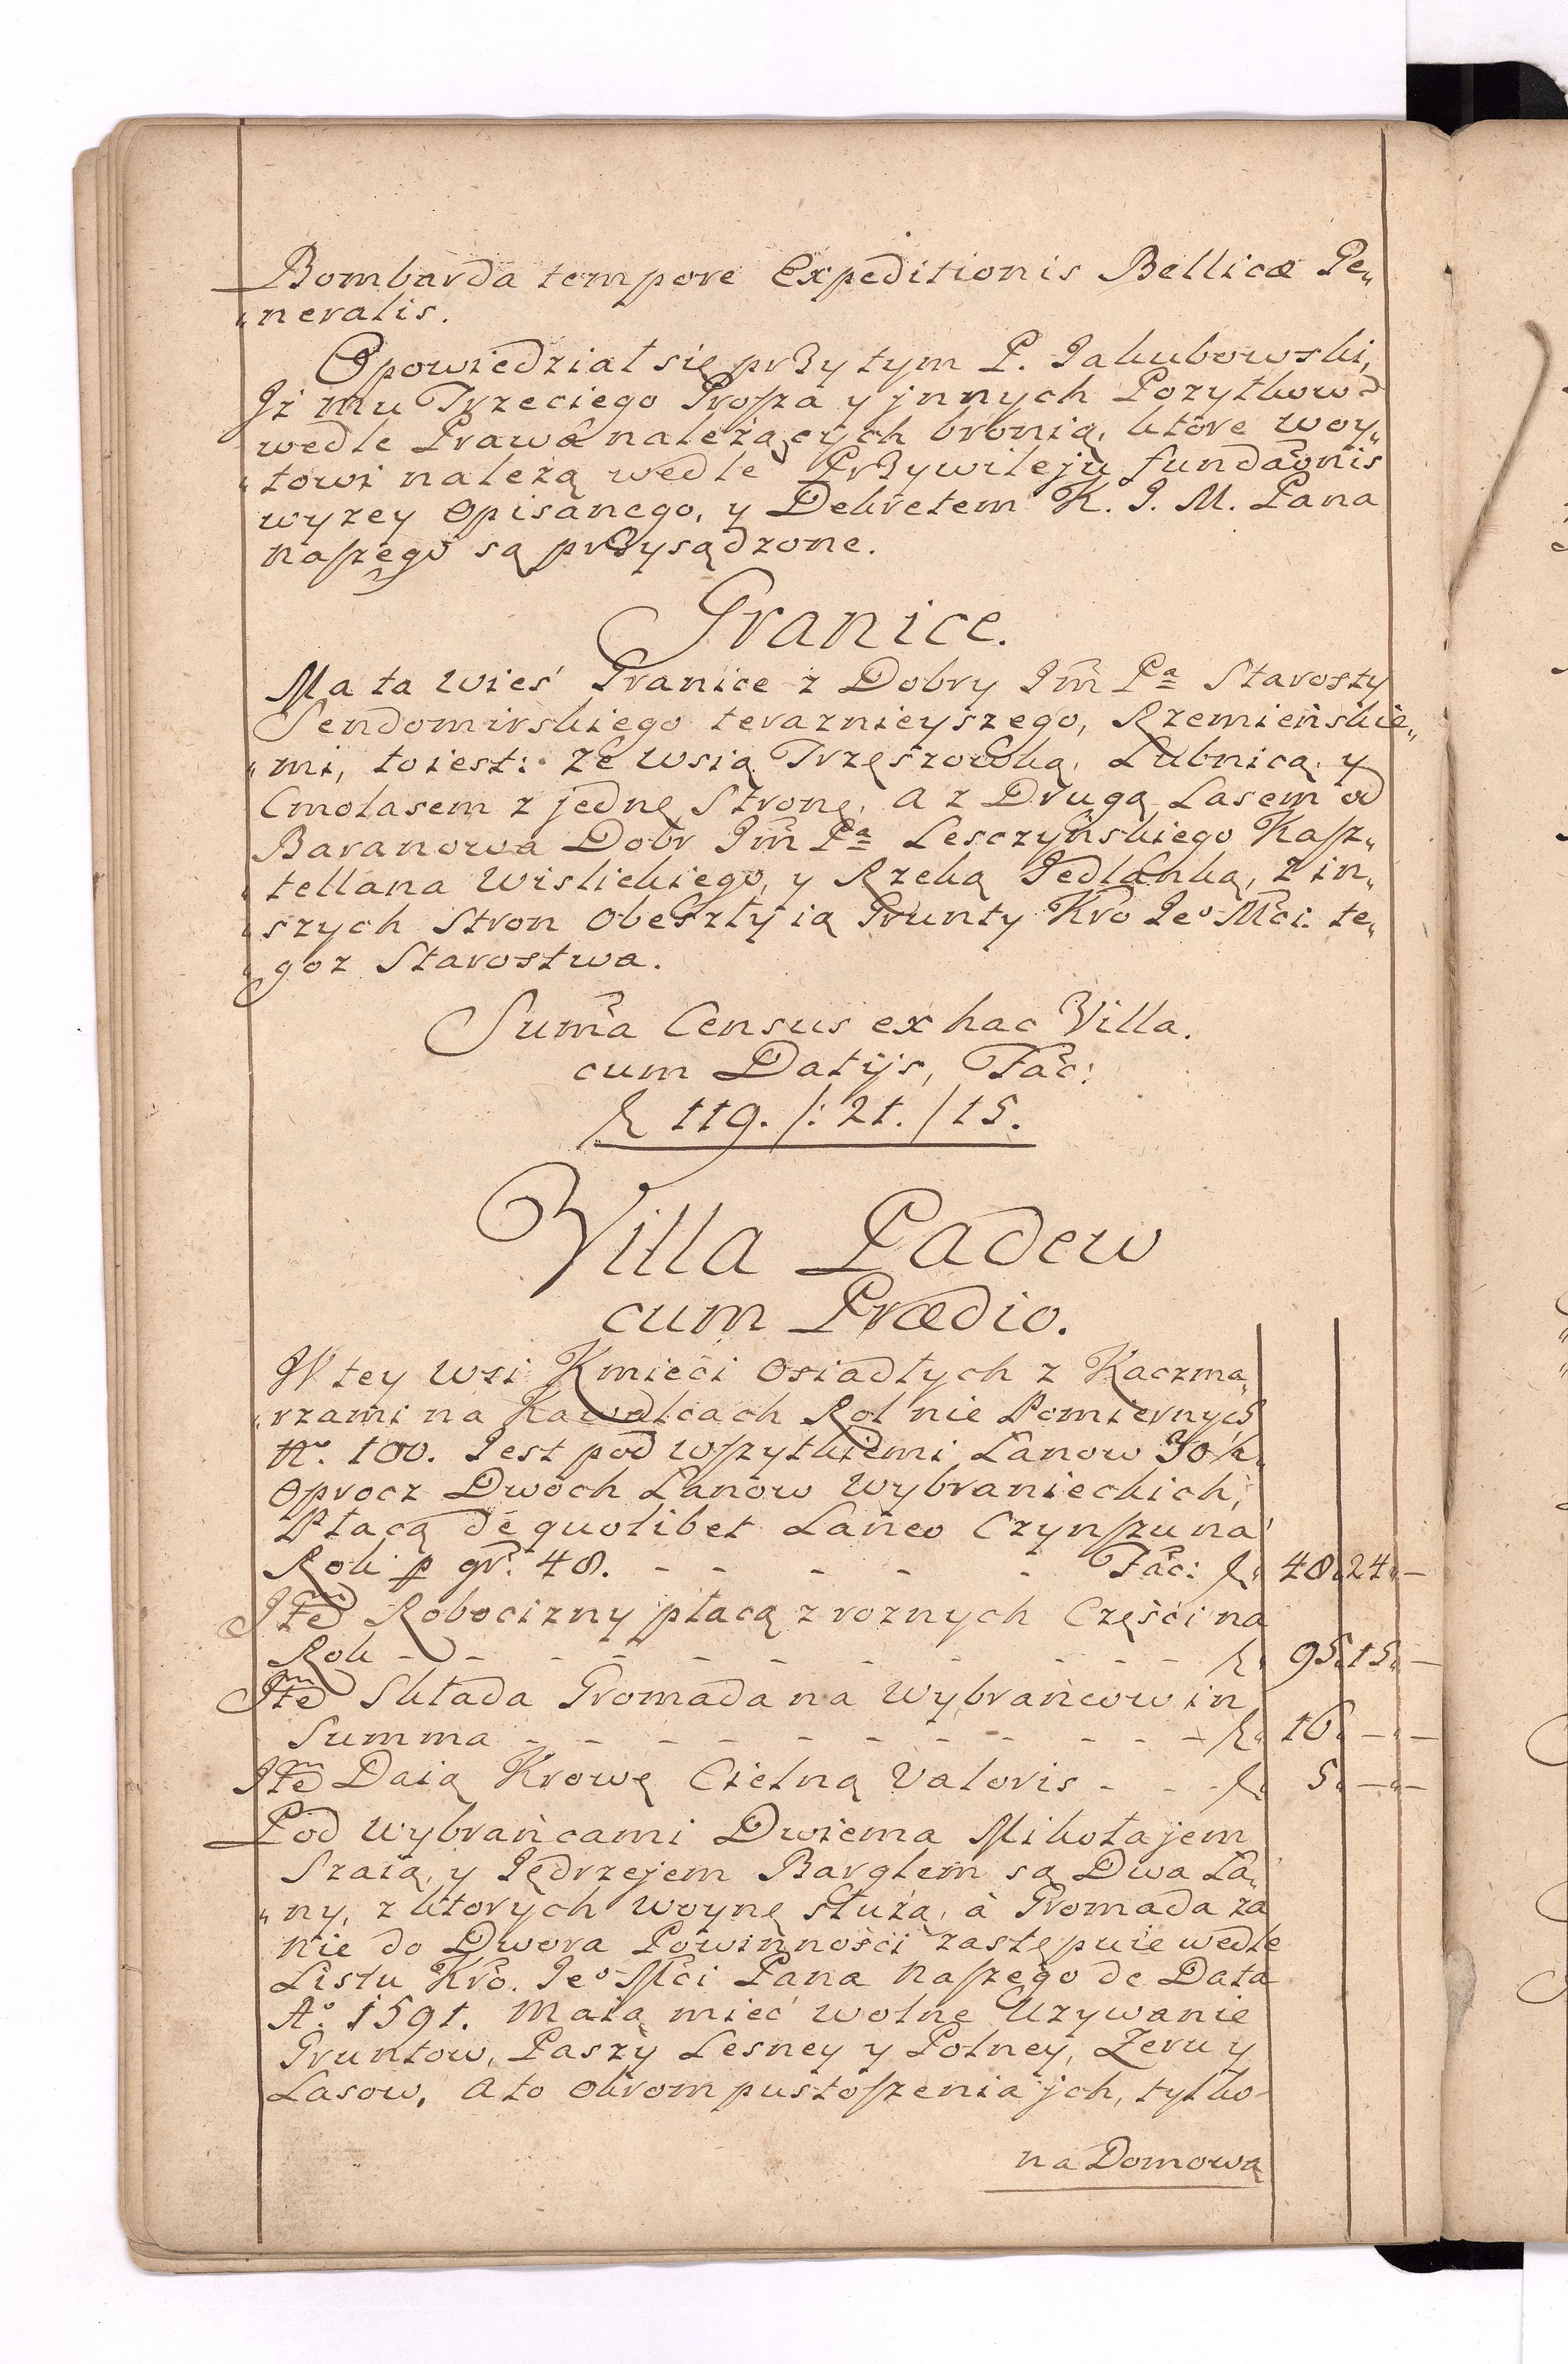 Bombarda tempore Expeditionis Bellicæ Ge„
„neralis.
Opowiedział się przytym P. Jakubowski,
Jż mu Trzeciego Grosza y jnnych Pozytkow
wedle Prawa należących bronią, ktore woy„
„towi należą wedle Przywileju fundaōnis
wyzey Opisanego, y Dekretem K. J. M. Pana
naszego są przysądzone.
Granice.
Ma ta wieś Granice z Dobry Jm̄ Pª Starosty
Sendomirskiego terazniejszego, Rzemieńskie„
„mi, toiest: Ze wsią Trzęszowką, Lubnicą, y
Cmolasem z jednę Stronę, a z Drugą Lasem od
Baranowa Dobr Jm̄ Pª Lesczyńskiego Kasz„
„tellana Wislickiego, y Rzeką Jedlanką, Z in„
„szych Stron Obeszły ią Grunty Kro Jeº Mći te„
„goz Starostwa.
Sum̄a Census ex hac Villa.
cum Datijs, Fac̄:
ƶ 119./: 21./15.
Villa Padew
cum Prædio.
W tey Wsi Kmieci Osiadłych z Kaczma„
„rzami na Kawalcach Rol nie Pomiernych
Nr. 100. Jest pod wszytkiemi Lanow 30½.
Oprocz Dwoch Lanow Wybranieckich,
Płacą de quolibet Laneo Czynszu na
Rok p gr. 48. - - - - - - Fac̄: ƶ 48„ 24„ —
Jtm̄ Robocizny płacą z roznych Części na
Rok - - - - - - - - - - - ƶ 95„ 15„ —
Jtm̄ Składa Gromada na Wybrańcow in
Summa - - - - - - - - - - - ƶ 16„ —„ —
Jtm̄ Daią Krowę Cielną Valoris - - - ƶ 5„ —„ —
Pod Wybrańcami Dwiema Mikołajem
Szaią, y Jędrzejem Barglem są Dwa La„
„ny, z ktorych woynę służą, à Gromada za
nie do Dwora Powinności zastępuie wedle
Listu Kro. Jeº Mći Pana naszego de Data
Aº. 1591. Maią mieć wolne Uzywanie
Gruntow, Paszy Lesney y Polney, Zeru y
Lasow, a to okrom pustoszenia jch, tylko
na Domową